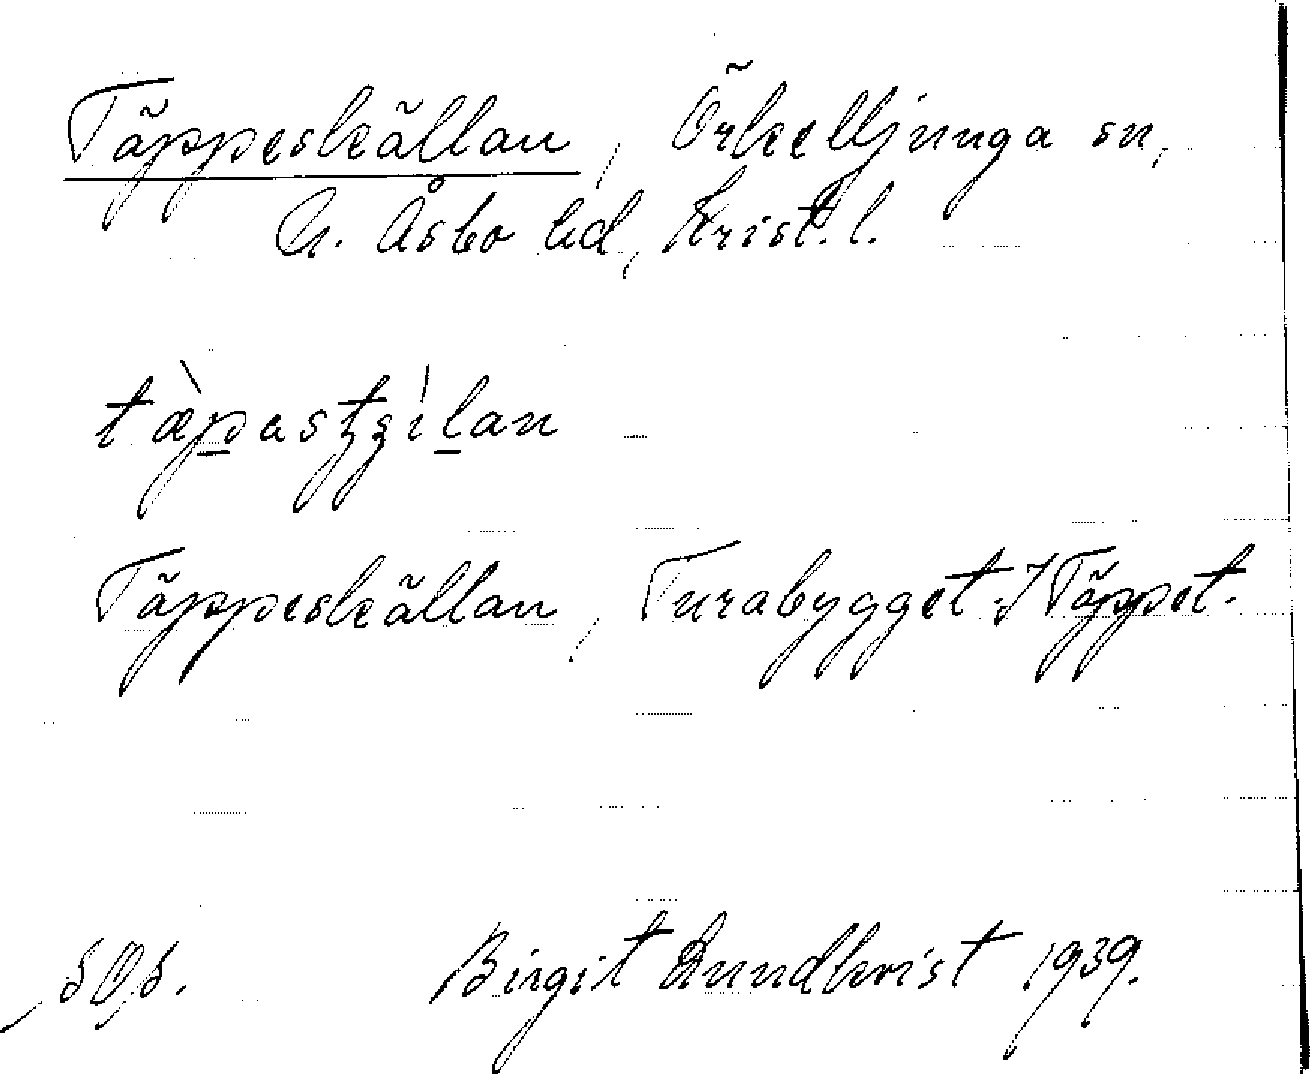 Täppeskällan, Örkelljunga sn,
N. Åsbo hd, Krist. l.
Täppeskällan, Turabygget. I Täppet.
Birgit Lundkvist 1939.